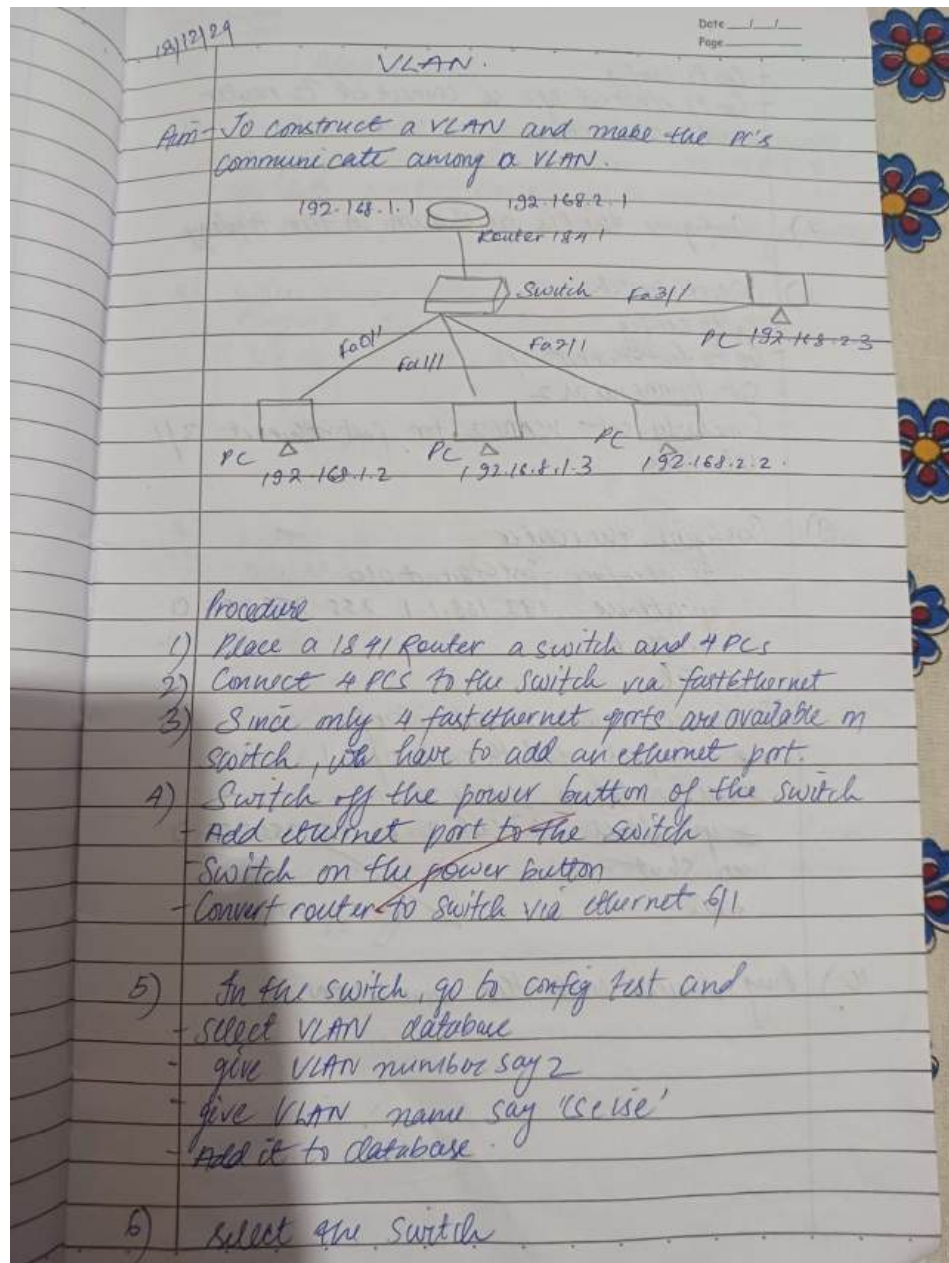 Date __/__/__
Page
18/12/24
VLAN.
Aim- To construct a VLAN and make the PC's
communicate among a VLAN.
192.168.1.1 192.168.2.1
Router 1841
Switch Fa3/1
Fa0/1 Fa1/1 Fa2/1
PC 192.168.2.3
PC PC PC
192.168.1.2 192.16.8.1.3 192.168.2.2.
Procedure
1) Place a 1841 Router a switch and 4 PCs
2) Connect 4 PCs to the switch via fastethernet
3) Since only 4 fastethernet ports are available in
switch, we have to add an ethernet port.
4) Switch off the power button of the switch
- Add ethernet port to the switch
- Switch on the power button
- Convert router to switch via ethernet 6/1
5) In the switch, go to config test and
- select VLAN database
- give VLAN number say 2
- give VLAN name say 'cseise'
- Add it to database.
6) Select the switch